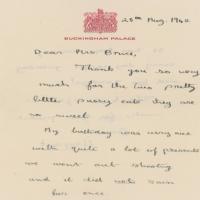 25th Aug. 1960
BUCKINGHAM PALACE
Dear Mrs Bruce,
Thank you so very
much for the two pretty
little pussy cats they are
so sweet
My birthday was very nice
with quite a lot of presents
we went out shooting
and it did not rain
for once